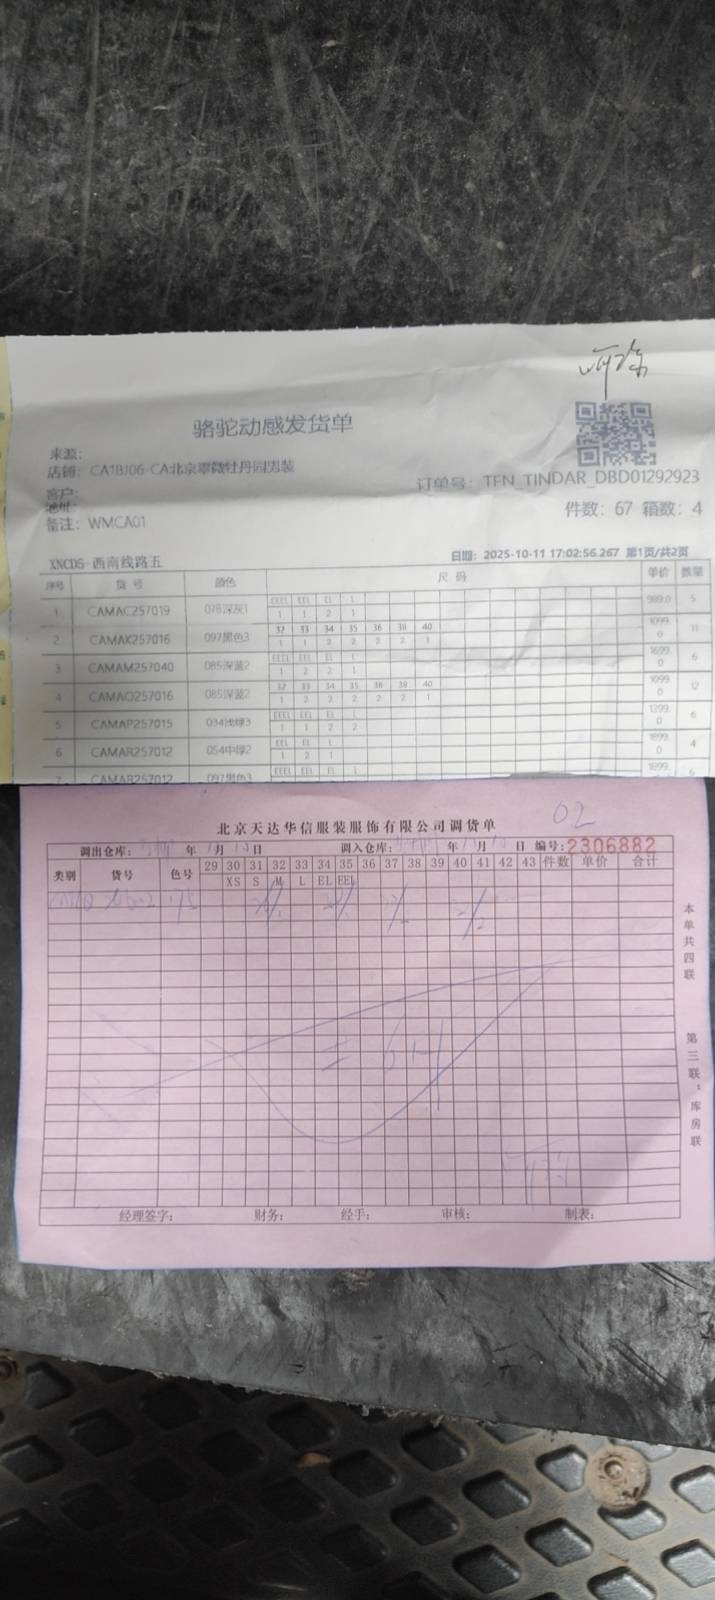 骆驼动感发货单
来源：
店铺：CA1BJ06-CA北京翠微牡丹园男装
订单号：TFN_TINDAR_DBD01292923
客户：
地址：
备注：WMCA01
件数：67 箱数：4
XNCD5-西南线路五
日期：2025-10-11 17:02:56.267 第1页/共2页
序号 货号 颜色 尺码 单价 数量
EEEL EEL EL L
1 CAMAC257019 078深灰1 1 1 2 1 989.0 5
32 33 34 35 36 38 40
2 CAMAK257016 097黑色3 1 1 2 2 2 2 1 1099.0 11
EEEL EEL EL L
3 CAMAM257040 085深蓝2 1 2 2 1 1699.0 6
32 33 34 35 36 38 40
4 CAMAO257016 085深蓝2 1 2 2 2 2 2 1 1099.0 12
EEEL EEL EL L
5 CAMAP257015 034浅绿3 1 1 2 2 1399.0 6
EEL EL L
6 CAMAR257012 054中绿2 1 2 1 1899.0 4
EEEL EEL EL L
7 CAMAR257012 097黑色3 1899. 6
02
北京天达华信服装服饰有限公司调货单
调出仓库： 年 月 日 调入仓库： 年 月 日 编号：2306882
类别 货号 色号 29 30 31 32 33 34 35 36 37 38 39 40 41 42 43 件数 单价 合计
XS S M L EL EEL
本单共四联
第三联：库房联
经理签字： 财务： 经手： 审核： 制表：